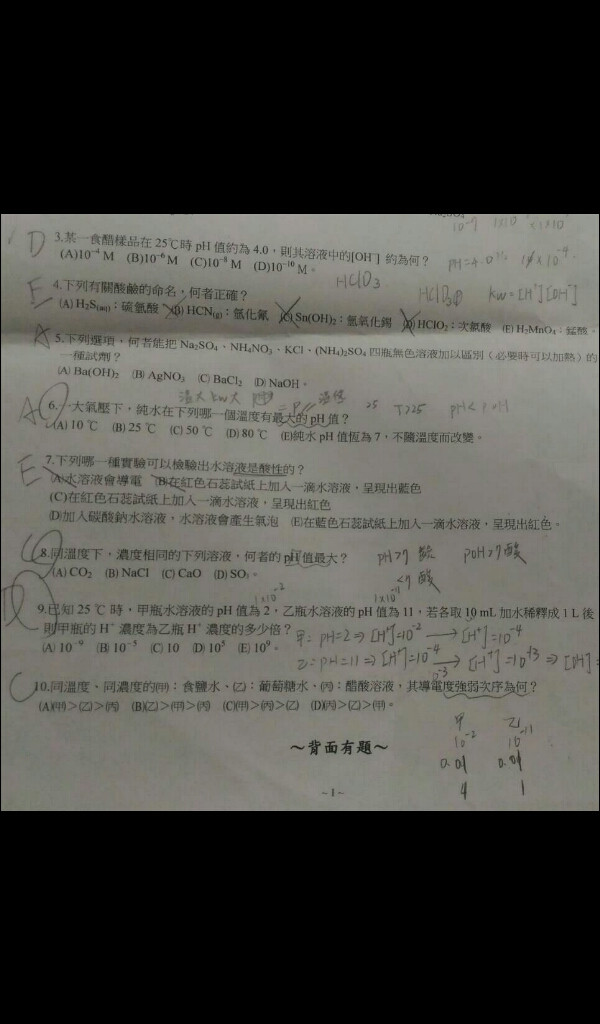 D 3.某一食醋樣品在 25℃時 pH 值約為 4.0，則其溶液中的[OH⁻] 約為何？
(A)10⁻⁴ M (B)10⁻⁶ M (C)10⁻⁸ M (D)10⁻¹⁰ M。
HClO₃
E 4.下列有關酸鹼的命名，何者正確？
Kw=[H⁺][OH⁻]
(A) H₂S(aq)：硫氫酸 (B) HCN(g)：氫化氰 (C) Sn(OH)₂：氫氧化錫 (D) HClO₂：次氯酸 (E) H₂MnO₄：錳酸。
A 5.下列選項，何者能把 Na₂SO₄、NH₄NO₃、KCl、(NH₄)₂SO₄ 四瓶無色溶液加以區別 (必要時可以加熱) 的
一種試劑？
(A) Ba(OH)₂ (B) AgNO₃ (C) BaCl₂ (D) NaOH。
25 T>25
A 6.一大氣壓下，純水在下列哪一個溫度有最大的 pH 值？
(A) 10 ℃ (B) 25 ℃ (C) 50 ℃ (D) 80 ℃ (E)純水 pH 值恆為 7，不隨溫度而改變。
E 7.下列哪一種實驗可以檢驗出水溶液是酸性的？
(A)水溶液會導電 (B)在紅色石蕊試紙上加入一滴水溶液，呈現出藍色
(C)在紅色石蕊試紙上加入一滴水溶液，呈現出紅色
(D)加入碳酸鈉水溶液，水溶液會產生氣泡 (E)在藍色石蕊試紙上加入一滴水溶液，呈現出紅色。
C 8.同溫度下，濃度相同的下列溶液，何者的 pH 值最大？
pH>7 鹼 pOH>7 酸
(A) CO₂ (B) NaCl (C) CaO (D) SO₃。
<7 酸
1x10⁻² 1x10⁻¹¹
D 9.已知 25 ℃ 時，甲瓶水溶液的 pH 值為 2，乙瓶水溶液的 pH 值為 11，若各取 10 mL 加水稀釋成 1 L 後
則甲瓶的 H⁺ 濃度為乙瓶 H⁺ 濃度的多少倍？
甲=pH=2⇒[H⁺]=10⁻² → [H⁺]=10⁻⁴
(A) 10⁻⁹ (B) 10⁻⁵ (C) 10 (D) 10⁵ (E) 10⁹。
乙=pH=11⇒
C 10.同溫度、同濃度的㈙：食鹽水、㈚：葡萄糖水、㈛：醋酸溶液，其導電度強弱次序為何？
(A)㈙>㈚>㈛ (B)㈚>㈙>㈛ (C)㈙>㈛>㈚ (D)㈛>㈚>㈙。
甲 乙
10⁻² 10⁻¹¹
～背面有題～
0.01 0.01
4 1
~1~